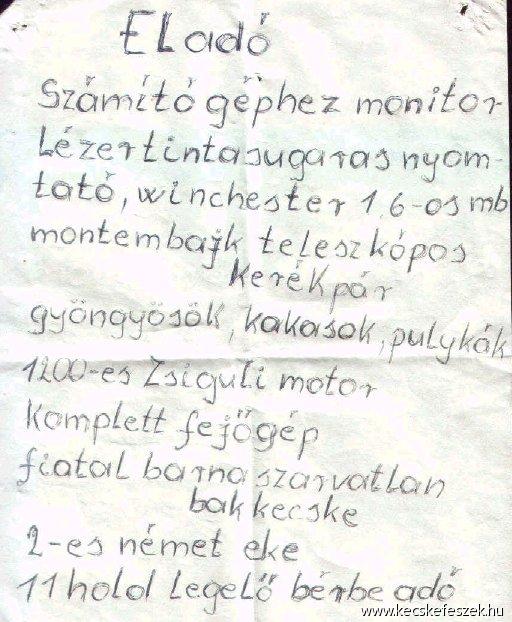 ELadó
Számító géphez monitor
Lézertintasugaras nyom-
tató, winchester 1,6-os mb
montembajk teleszkópos
kerékpár
gyöngyösök, kakasok, pulykák
1200-es Zsiguli motor
komplett fejőgép
fiatal barna szarvatlan
bak kecske
2-es német eke
11 hold legelő bérbe adó
www.kecskefeszek.hu